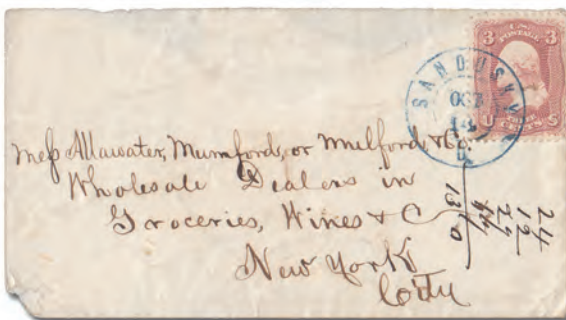 3 U.S. POSTAGE 3
SANDUSKY
OCT
14
O.
U S
THREE CENTS
Mess Allawater, Mumfords, or Mulford, & Co.
Wholesale Dealers in
Groceries, Wines & C
New York
City
24
12